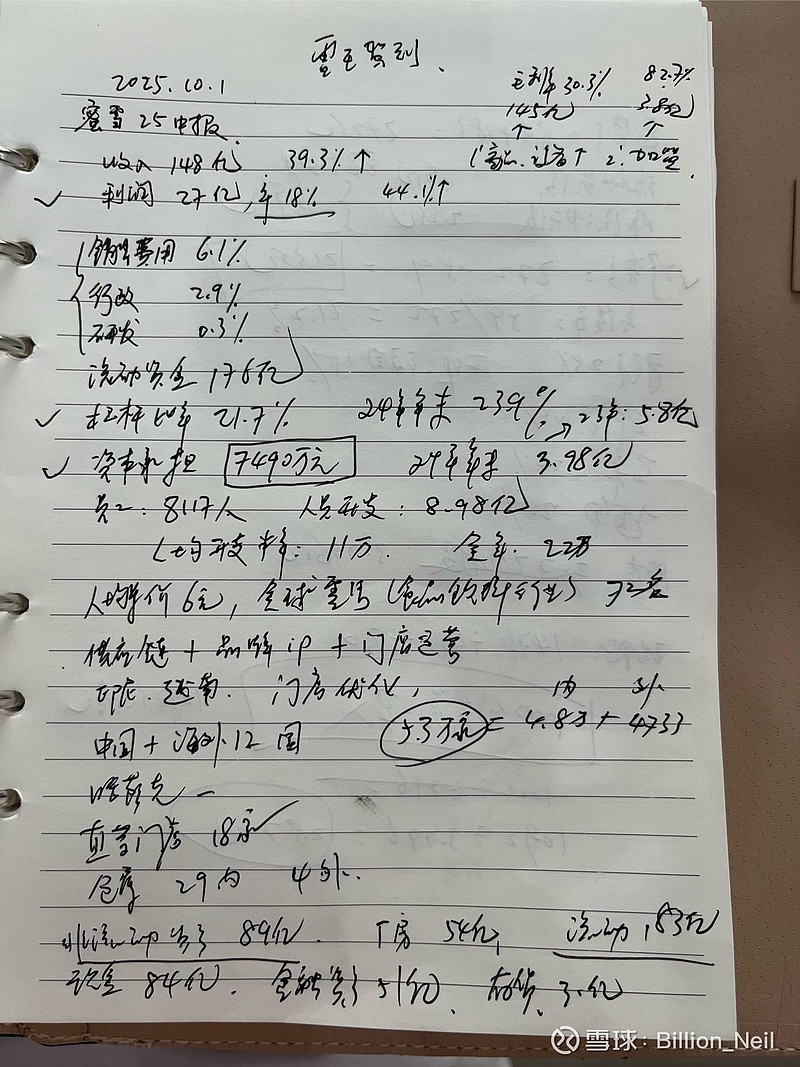 雪王驾到、
2025.10.1 毛利率 30.3% 82.7%
145亿 3.8亿
蜜雪 25中报 ↑ ↑
收入 148亿 39.3%↑ 1'商品、设备↑ 2'加盟
利润 27亿,率18% 44.1%↑
销售费用 6.1%
行政 2.9%
研发 0.3%
流动资金 176亿
杠杆比率 21.7% 24年年末 239% 23年:5.8亿
资本承担 7490万元 24年年末 3.98亿
员工:8117人 人员开支:8.98亿
人均开支 半年:11万. 全年.22万
人均单价6元,全球 (食品饮料行业)
供应链 + 品牌ip + 门店运营
印尼.越南.门店优化, 内 外
中国 + 海外12国 5.3万家 = 4.8万 + 4733
哈萨克一
直营门店 18家
仓库 29内 4外.
非流动资产 89亿. 厂房 54亿, 流动 183亿
现金 84亿. 金融资产 51亿、存货、
雪球:Billion_Neil